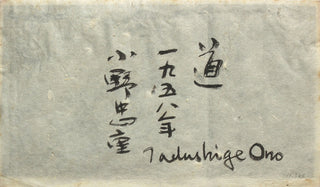 道
一九五八年
小野忠重
Tadashige Ono